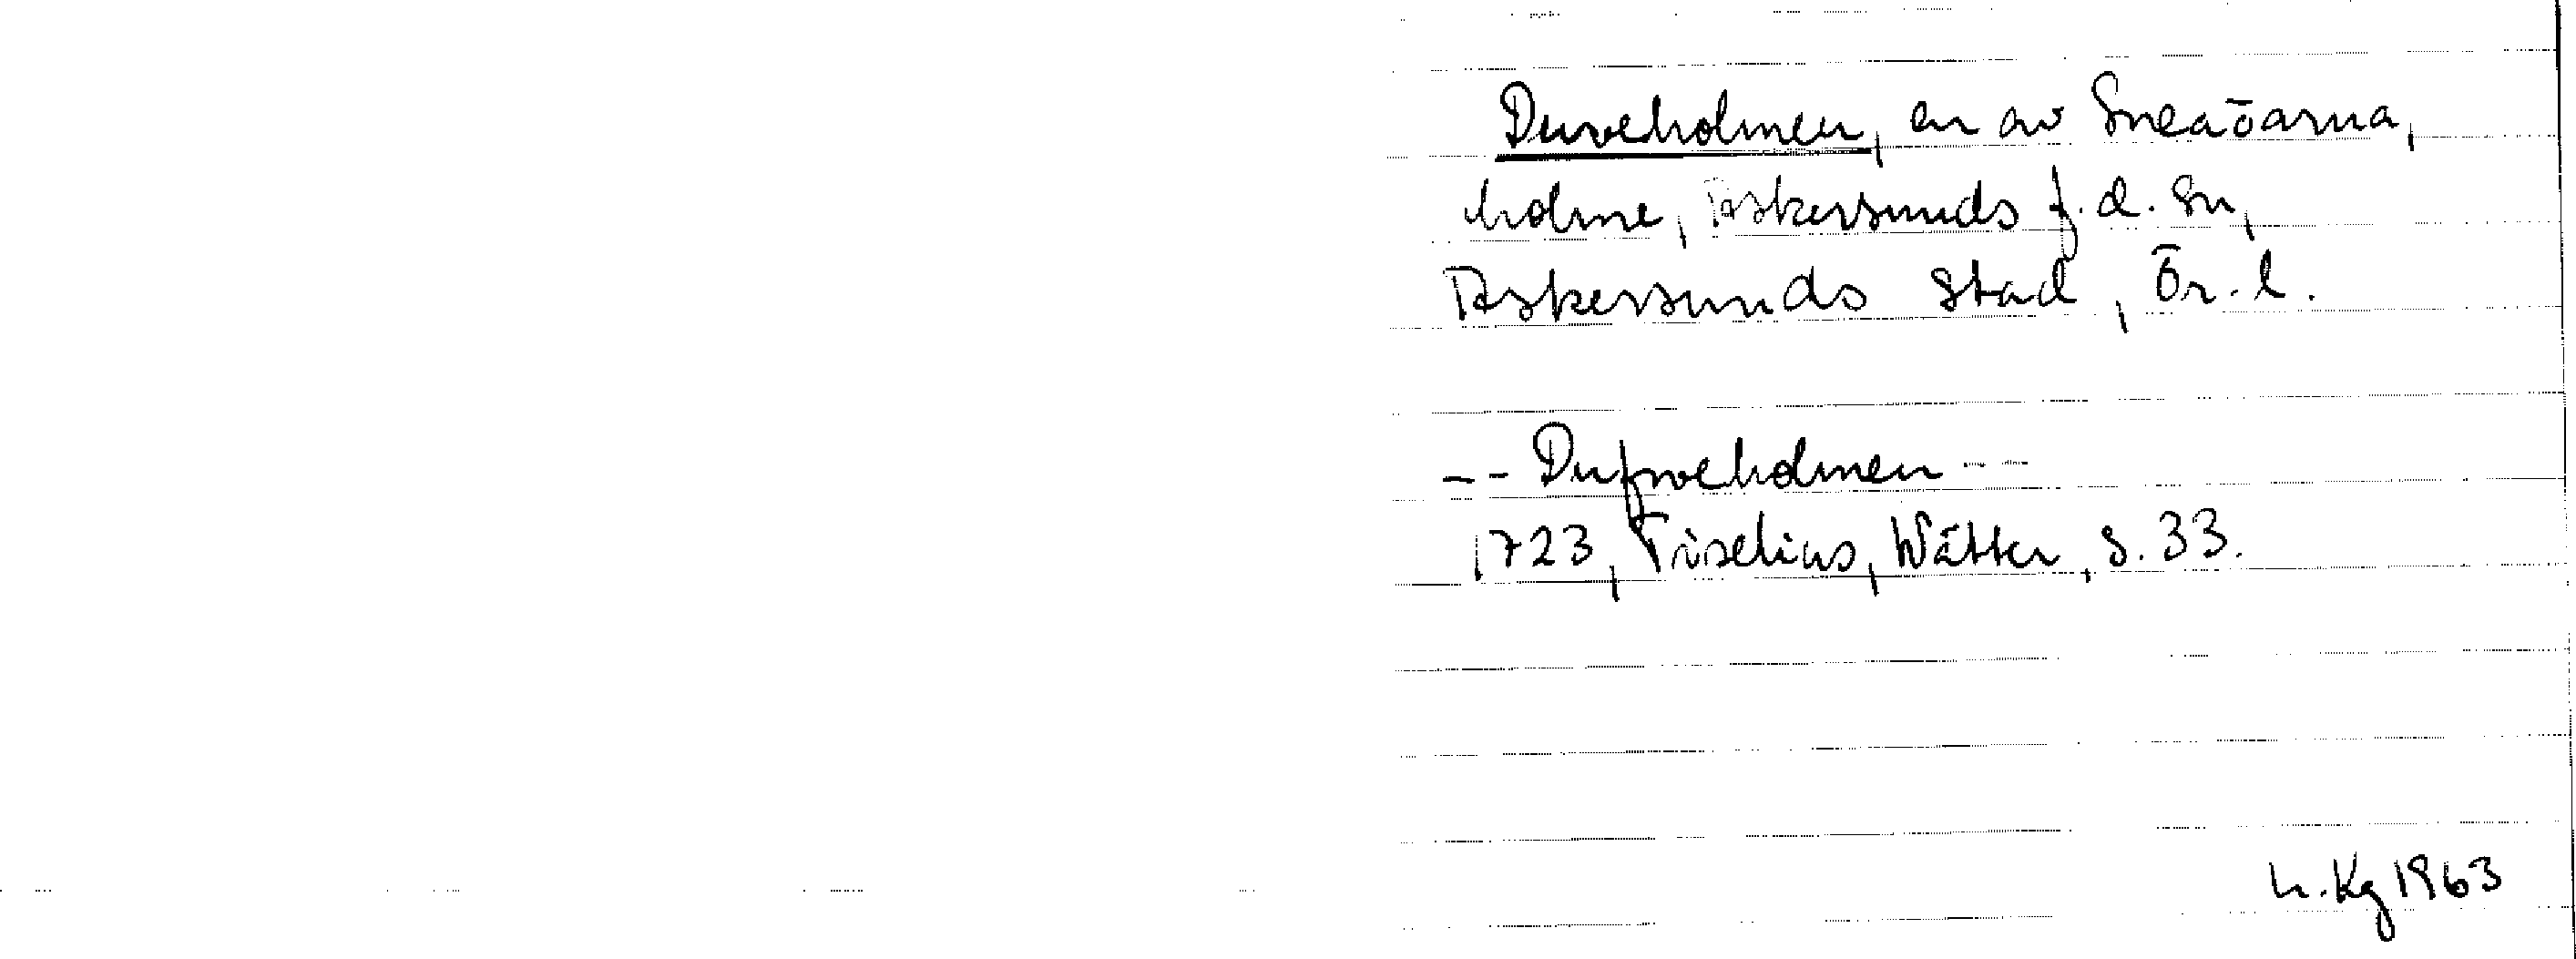 Duveholmen, en av Sneaöarna,
holme, Askersunds f.d. sn,
Askersunds stad, Ör. l.
-- Dufveholmen --
1723, Tiselius, Wätter, s. 33.
h. Kg 1963